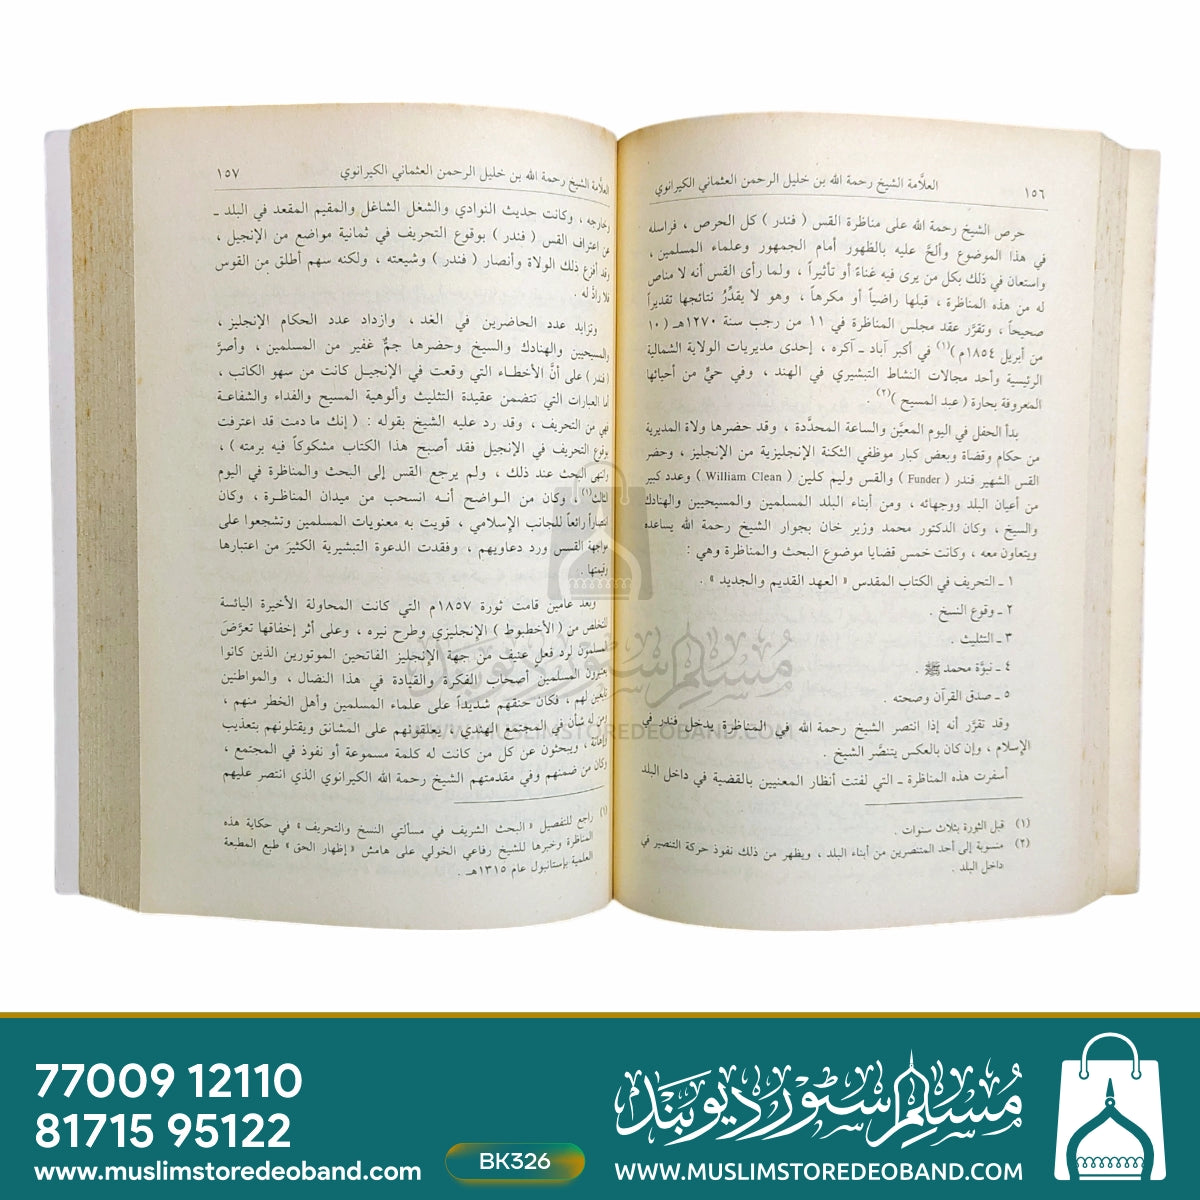 العلاَّمة الشيخ رحمة الله بن خليل الرحمن العثماني الكيرانوي
١٥٦
حرص الشيخ رحمة الله على مناظرة القس ( فندر ) كل الحرص ، فراسله
في هذا الموضوع وألحَّ عليه بالظهور أمام الجمهور وعلماء المسلمين ،
واستعان في ذلك بكل من يرى فيه غناءً أو تأثيراً ، ولما رأى القس أنه لا مناص
له من هذه المناظرة ، قبلها راضياً أو مكرهاً ، وهو لا يقدِّرُ نتائجها تقديراً
صحيحاً ، وتقرَّر عقد مجلس المناظرة في ١١ من رجب سنة ١٢٧٠هـ ( ١٠
من أبريل ١٨٥٤م )(١) في أكبر آباد ـ آكره ، إحدى مديريات الولاية الشمالية
الرئيسية وأحد مجالات النشاط التبشيري في الهند ، وفي حيٍّ من أحيائها
المعروفة بحارة ( عبد المسيح )(٢) .
بدأ الحفل في اليوم المعيَّن والساعة المحدَّدة ، وقد حضرها ولاة المديرية
من حكام وقضاة وبعض كبار موظفي الثكنة الإنجليزية من الإنجليز ، وحضر
القس الشهير فندر ( Funder ) والقس وليم كلين ( William Clean ) وعدد كبير
من أعيان البلد ووجهائه ، ومن أبناء البلد المسلمين والمسيحيين والهنادك
والسيخ ، وكان الدكتور محمد وزير خان بجوار الشيخ رحمة الله يساعده
ويتعاون معه ، وكانت خمس قضايا موضوع البحث والمناظرة وهي :
١ ـ التحريف في الكتاب المقدس « العهد القديم والجديد » .
٢ ـ وقوع النسخ .
٣ ـ التثليث .
٤ ـ نبوَّة محمد ﷺ .
٥ ـ صدق القرآن وصحته .
وقد تقرَّر أنه إذا انتصر الشيخ رحمة الله في المناظرة يدخل فندر في
الإسلام ، وإن كان بالعكس يتنصَّر الشيخ .
أسفرت هذه المناظرة ـ التي لفتت أنظار المعنيين بالقضية في داخل البلد
(١) قبل الثورة بثلاث سنوات .
(٢) منسوبة إلى أحد المتنصرين من أبناء البلد ، ويظهر من ذلك نفوذ حركة التنصير في
داخل البلد .
العلاَّمة الشيخ رحمة الله بن خليل الرحمن العثماني الكيرانوي
١٥٧
وخارجه ، وكانت حديث النوادي والشغل الشاغل والمقيم المقعد في البلد ـ
عن اعتراف القس ( فندر ) بوقوع التحريف في ثمانية مواضع من الإنجيل ،
وقد أفزع ذلك الولاة وأنصار ( فندر ) وشيعته ، ولكنه سهم أطلق من القوس
فلا رادَّ له .
وتزايد عدد الحاضرين في الغد ، وازداد عدد الحكام الإنجليز ،
والمسيحيين والهنادك والسيخ وحضرها جمٌّ غفير من المسلمين ، وأصرَّ
( فندر ) على أنَّ الأخطاء التي وقعت في الإنجيل كانت من سهو الكاتب ،
أما العبارات التي تتضمن عقيدة التثليث وألوهية المسيح والفداء والشفاعة
فهي من التحريف ، وقد رد عليه الشيخ بقوله : ( إنك ما دمت قد اعترفت
بوقوع التحريف في الإنجيل فقد أصبح هذا الكتاب مشكوكاً فيه برمته ) ،
وانتهى البحث عند ذلك ، ولم يرجع القس إلى البحث والمناظرة في اليوم
الثالث(١) وكان من الواضح أنه انسحب من ميدان المناظرة ، وكان
انتصاراً رائعاً للجانب الإسلامي ، قويت به معنويات المسلمين وتشجعوا على
مواجهة القسس ورد دعاويهم ، وفقدت الدعوة التبشيرية الكثيرَ من اعتبارها
وقيمتها .
وبعد عامين قامت ثورة ١٨٥٧م التي كانت المحاولة الأخيرة اليائسة
للتخلص من ( الأخطبوط ) الإنجليزي وطرح نيره ، وعلى أثر إخفاقها تعرَّضَ
المسلمون لرد فعل عنيف من جهة الإنجليز الفاتحين الموتورين الذين كانوا
يعتبرون المسلمين أصحاب الفكرة والقيادة في هذا النضال ، والمواطنين
تابعين لهم ، فكان حنقهم شديداً على علماء المسلمين وأهل الخطر منهم ،
ومن له شأن في المجتمع الهندي ، يعلقونهم على المشانق ويقتلونهم بتعذيب
وإهانة ، ويبحثون عن كل من كانت له كلمة مسموعة أو نفوذ في المجتمع ،
وكان من ضمنهم وفي مقدمتهم الشيخ رحمة الله الكيرانوي الذي انتصر عليهم
(١) راجع للتفصيل « البحث الشريف في مسألتي النسخ والتحريف » في حكاية هذه
المناظرة وخبرها للشيخ رفاعي الخولي على هامش « إظهار الحق » طبع المطبعة
العلمية بإستانبول عام ١٣١٥هـ .
مُسلم سٹور دیوبند
WWW.MUSLIMSTOREDEOBAND.COM
77009 12110
81715 95122
www.muslimstoredeoband.com
BK326
مُسلم سٹور دیوبند
WWW.MUSLIMSTOREDEOBAND.COM